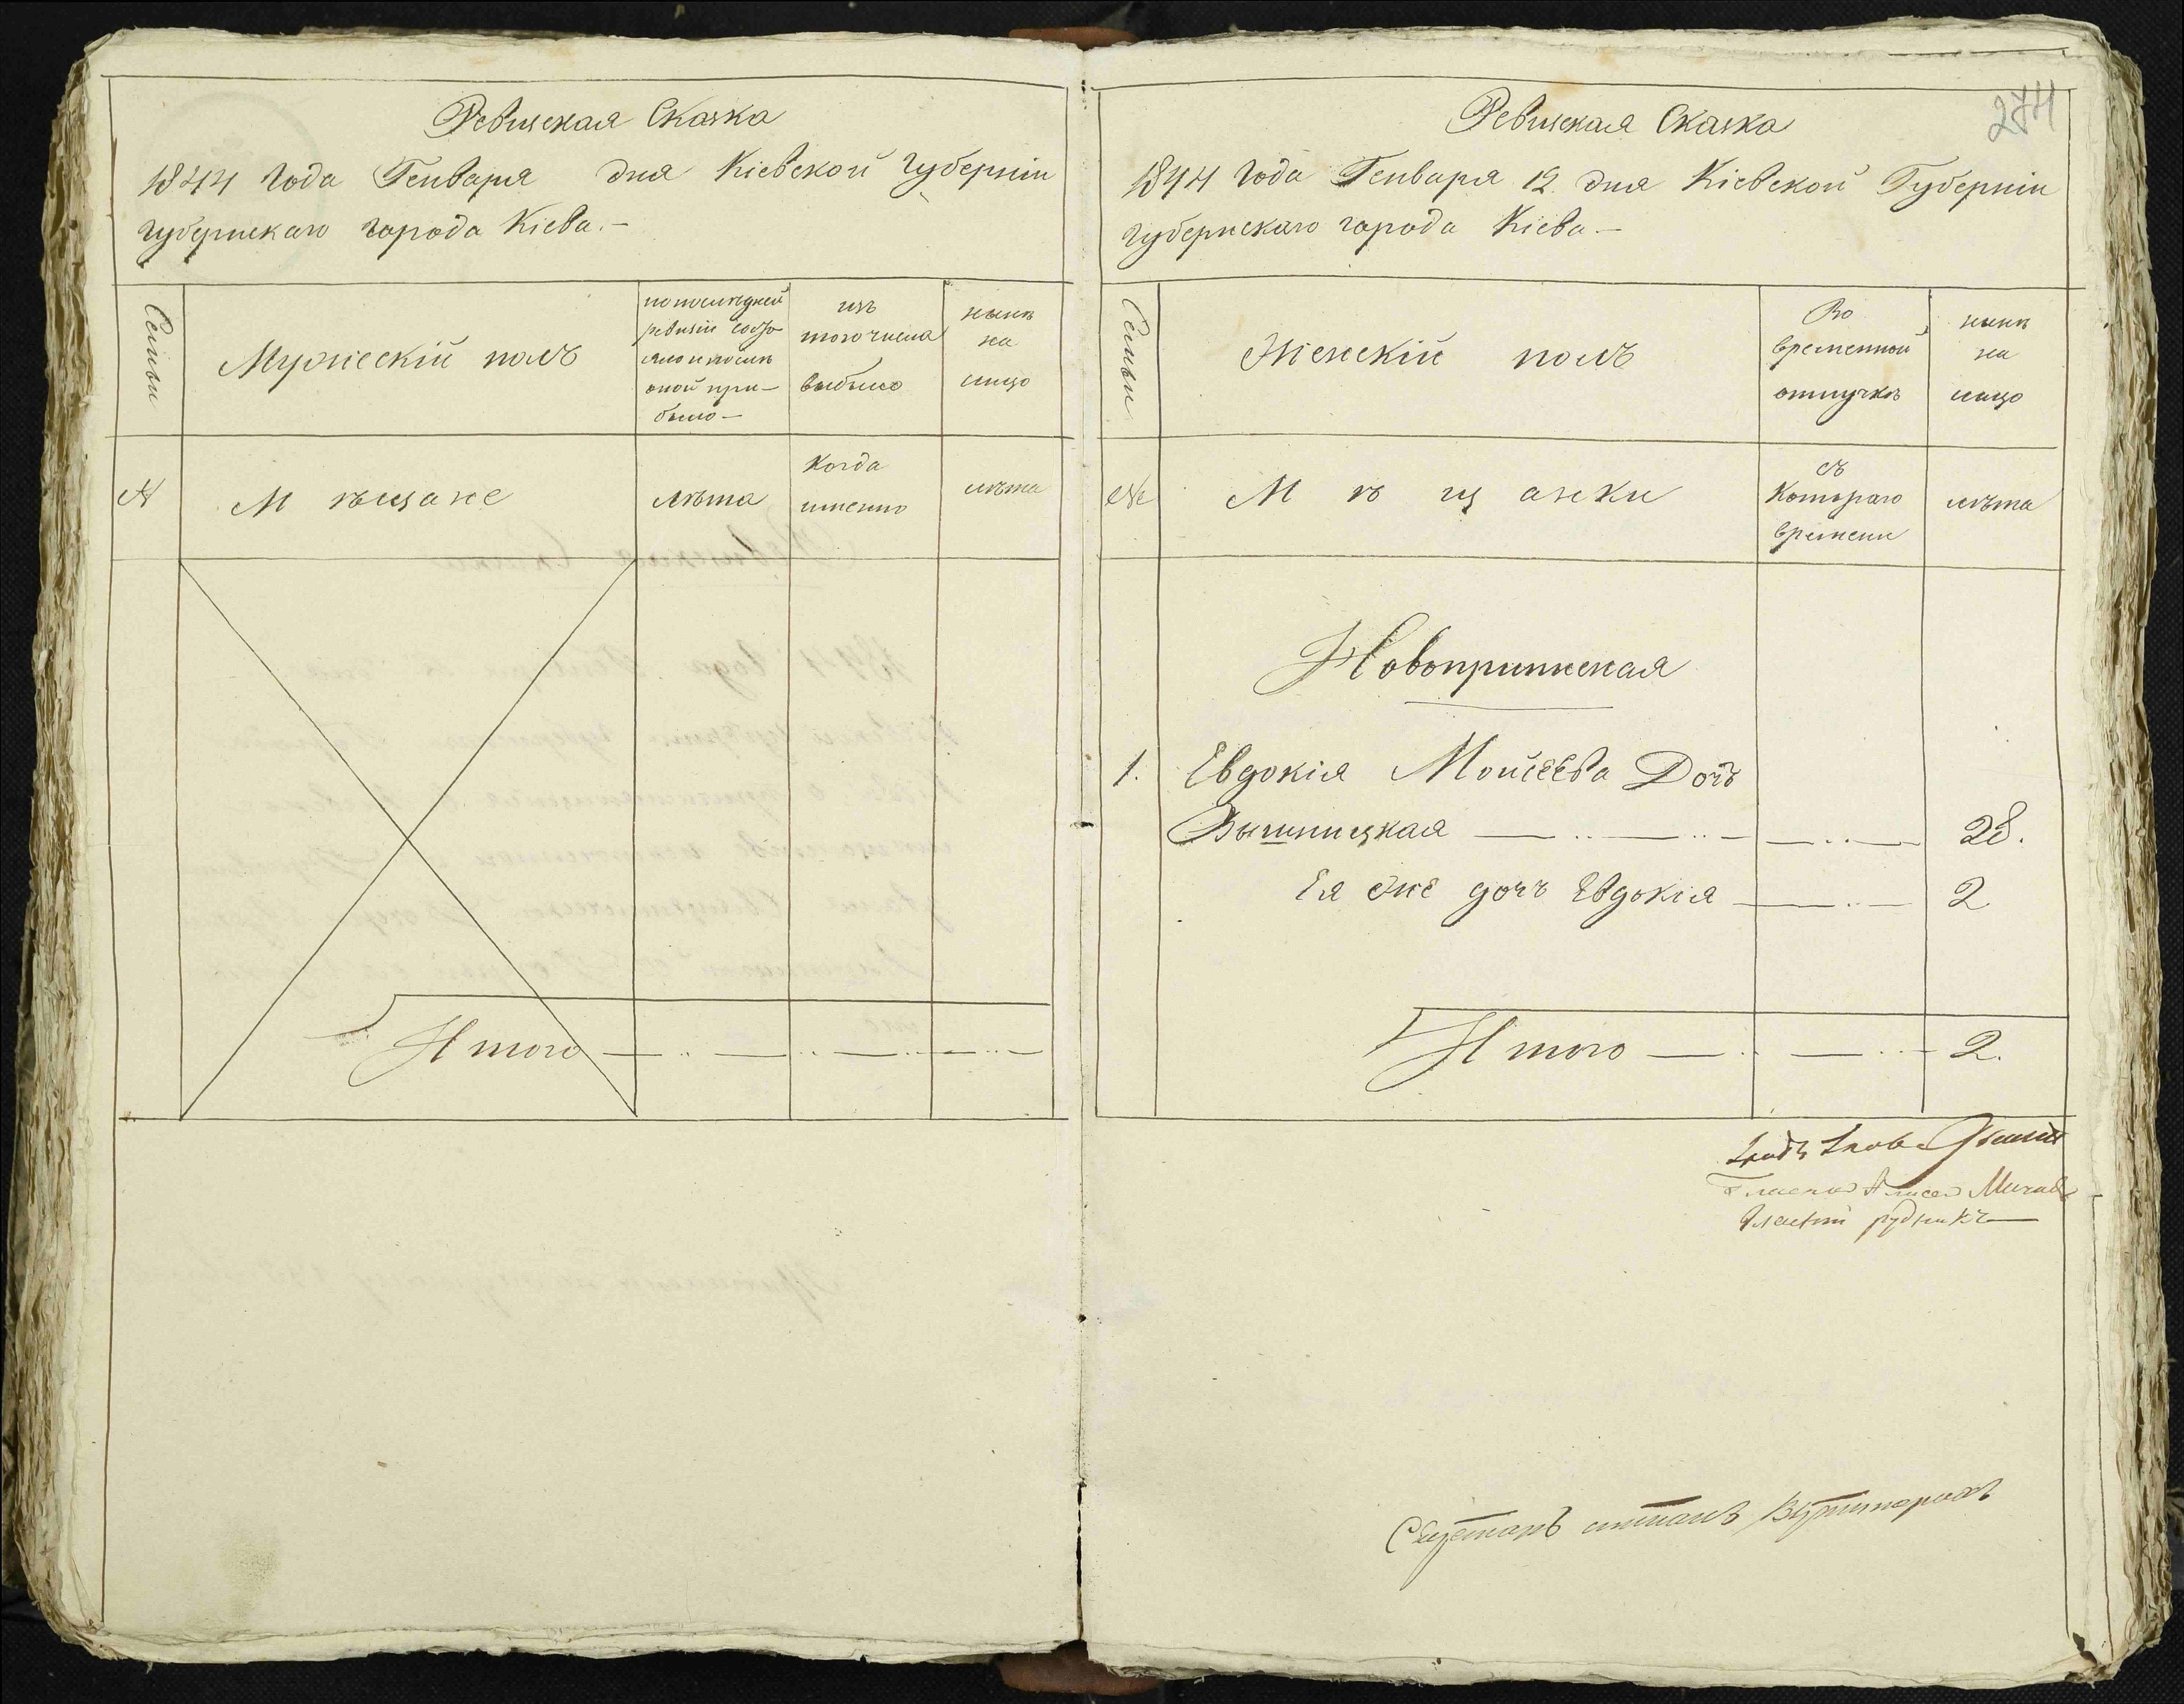 Ревизская Сказка
1844 года Генваря дня Кіевской Губерніи
губернскаго города Кіева.—
Семьи
Мужескій полъ
по последней
ревизіи состо
яло и после
оной при-
было—
изъ
того числа
выбыло
нынѣ
на
лицо
№
Мѣщане
лѣта
когда
именно
лѣта
Итого
274
Ревизская Сказка
1844 года Генваря 12 дня Кіевской Губерніи
губернскаго города Кіева—
Семьи
Женскій полъ
Во
временной
отлучкѣ
нынѣ
на
лицо
№
Мѣщанки
съ
котораго
времени
лѣта
Новоприписная
1. Евдокія Моисеева Дочь
Вышницкая 28.
Ея же дочь Евдокія 2
Итого 2.